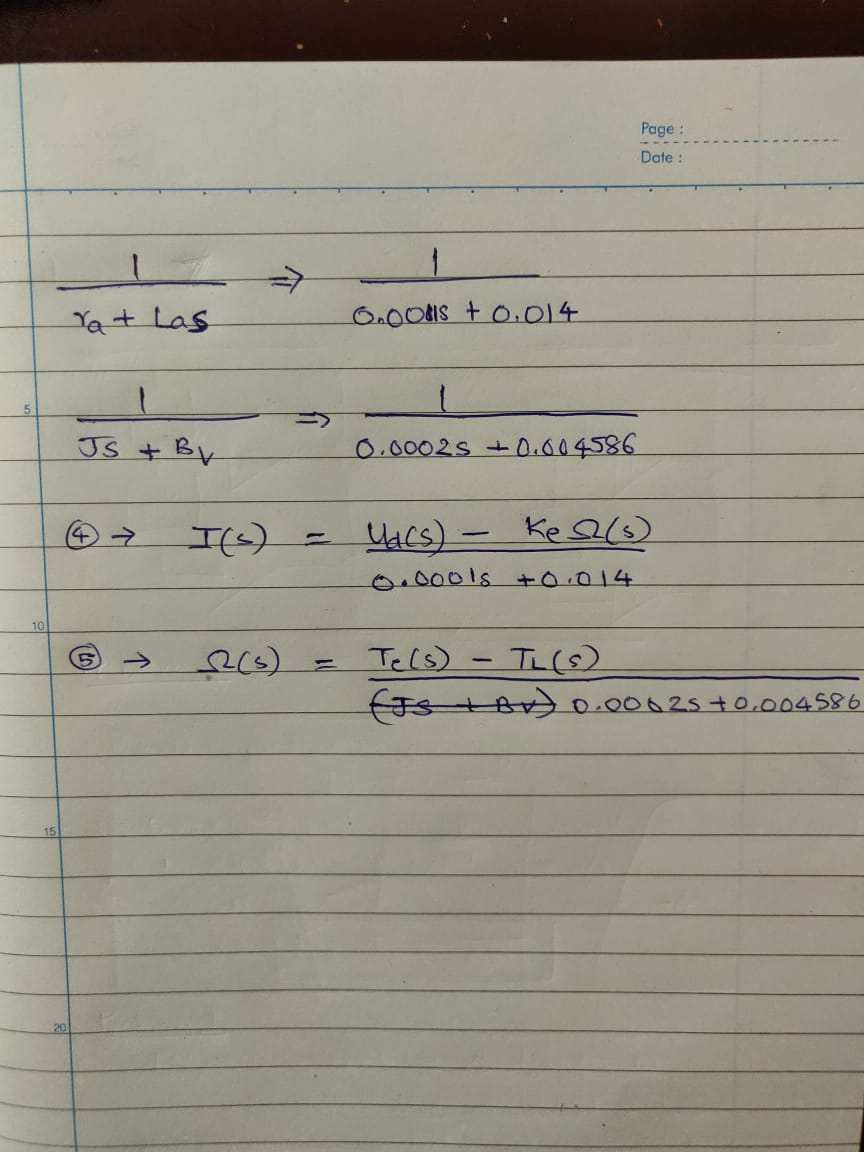 Page :
Date :
1/(ra + Las) ⇒ 1/(0.0001s + 0.014)
5
1/(Js + Bv) ⇒ 1/(0.0002s + 0.004586)
④ → I(s) = (Ua(s) − Ke Ω(s))/(0.0001s + 0.014)
10
⑤ → Ω(s) = (Te(s) − TL(s))/(0.0002s + 0.004586)
15
20